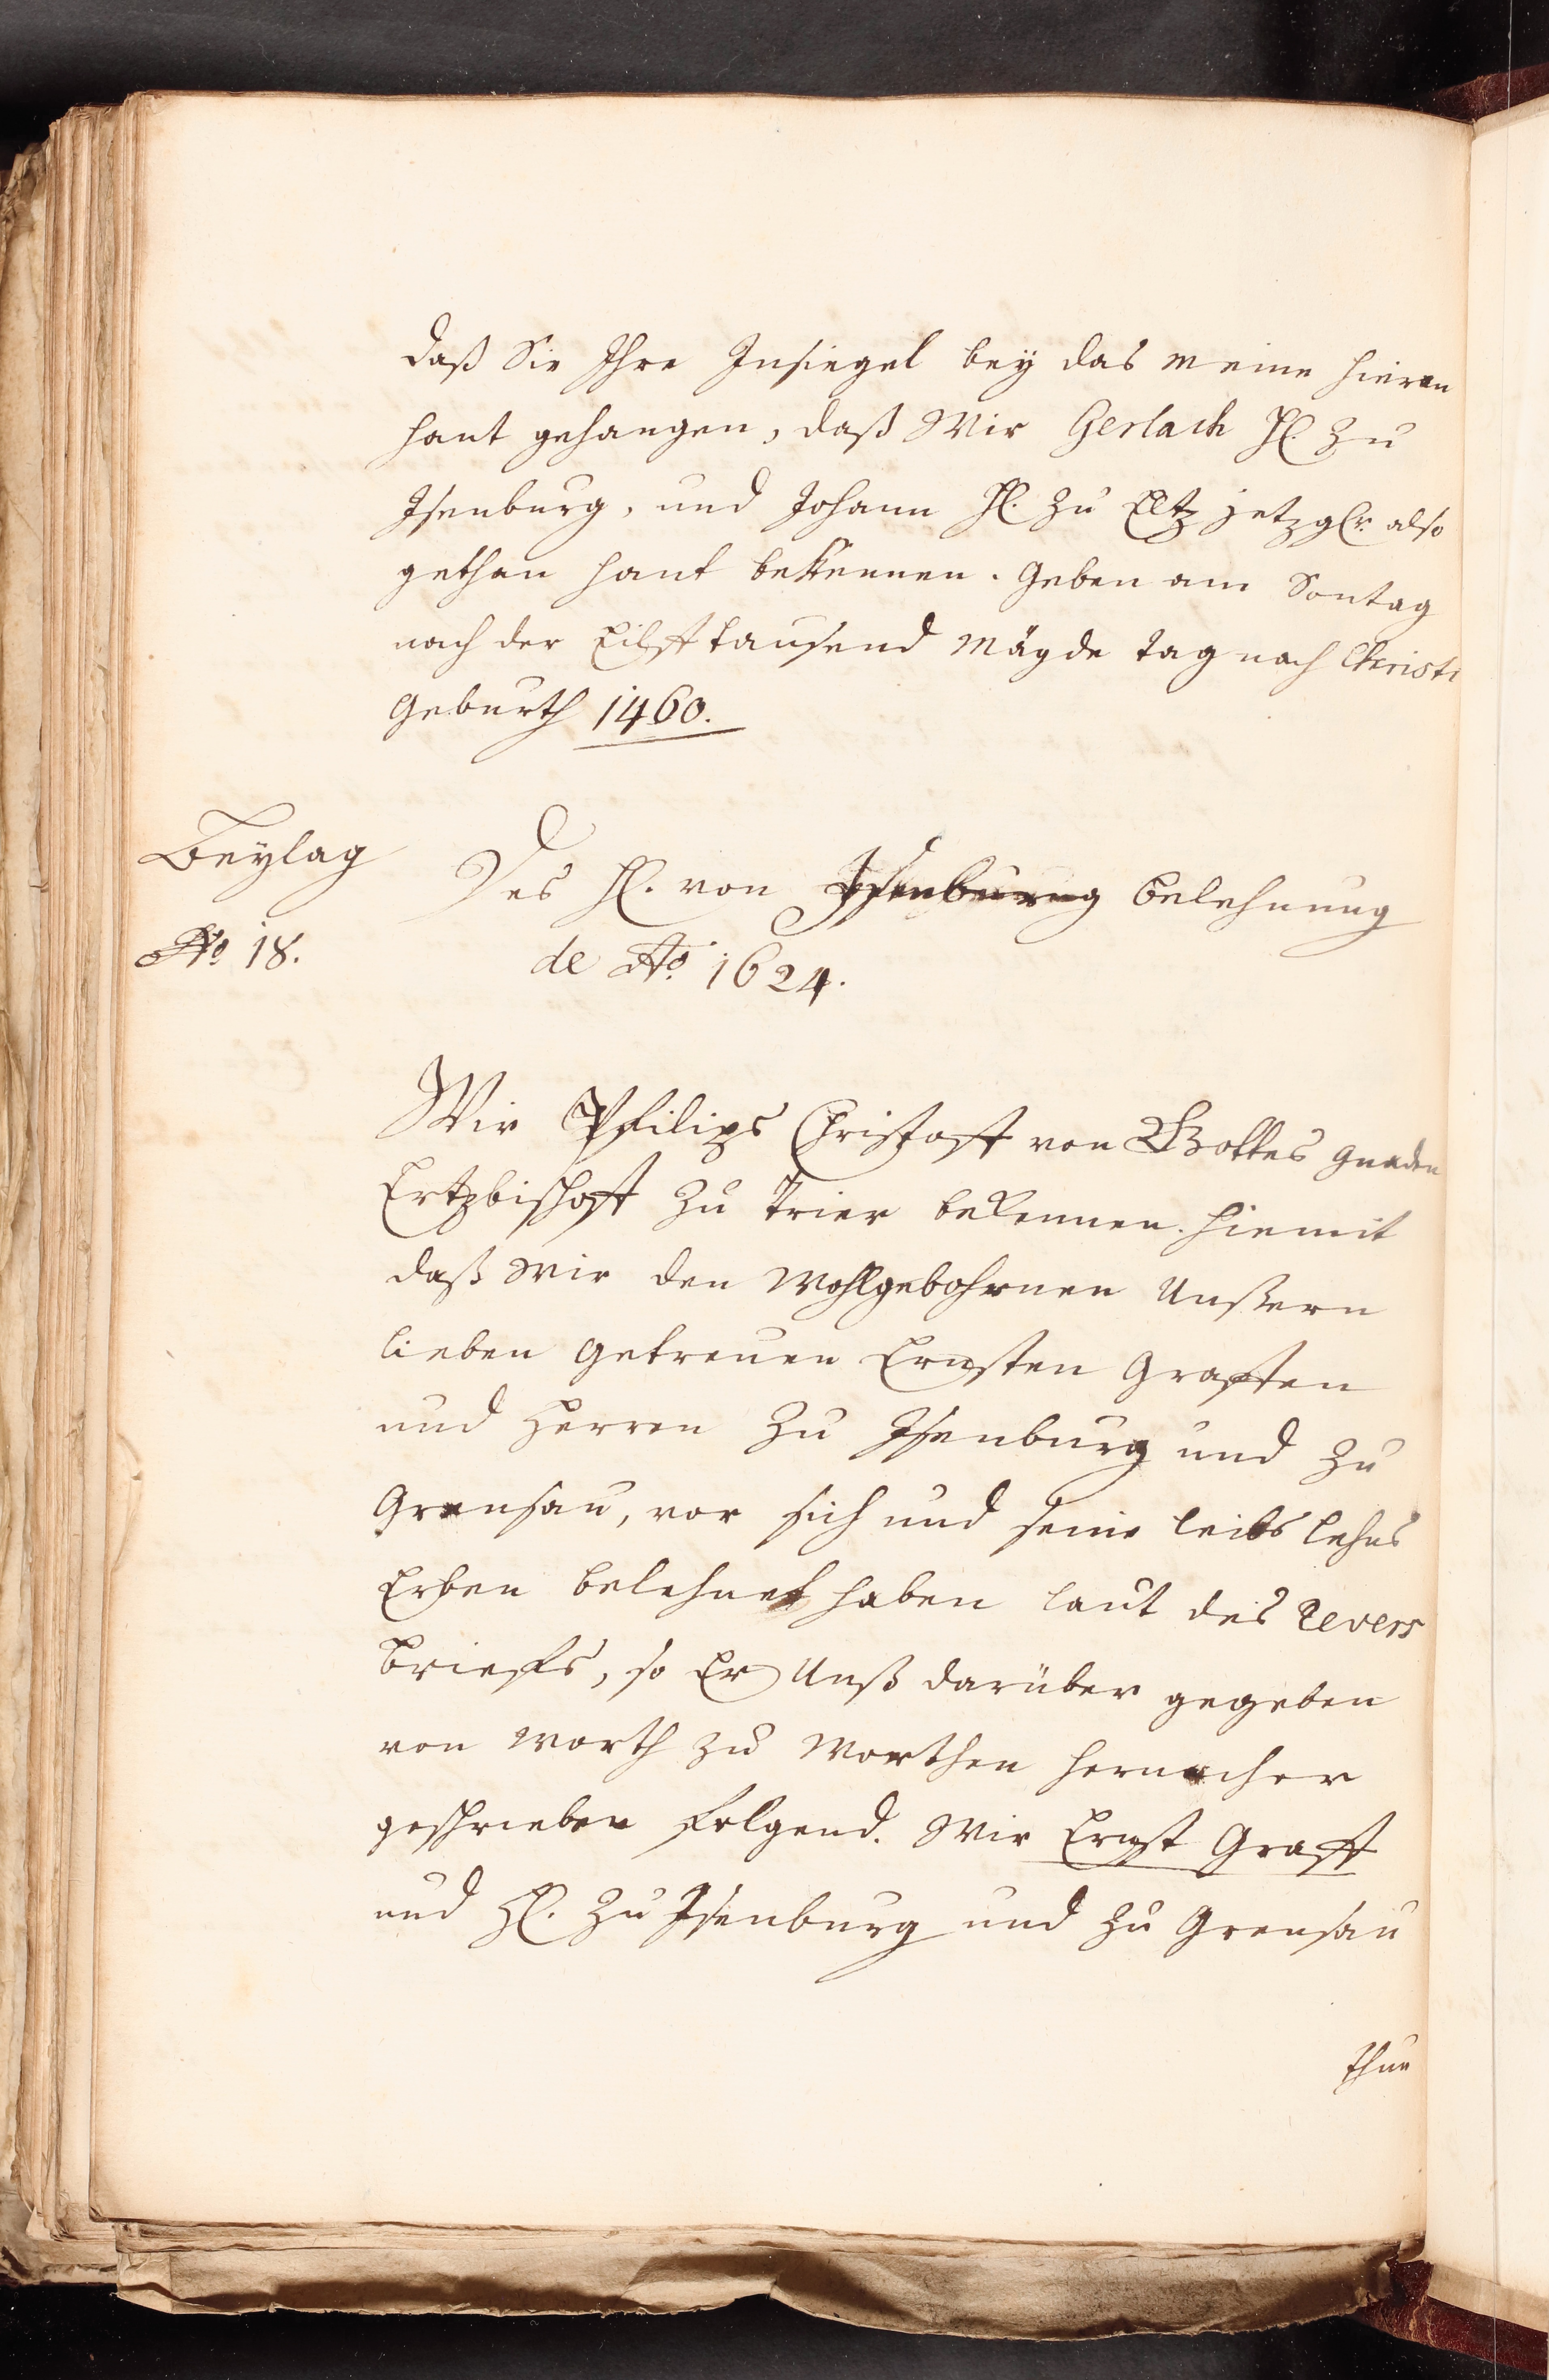 daß Sie Ihre Insiegel bey das meine hieran
hant gehangen, daß Wir Gerlach H. zu
Isenburg, und Johann H. zu Eltz jetzglr. also
gethan hant bekennen. Geben am Sontag
nach der Eilfftausend Mägde tag nach Christi
Geburth 1460.
Beylag
No. 18.
Des H. von Isenburg belehnung
de Ao. 1624.
Wir Philips Christoff von Gottes gnaden
Ertzbischoff zu Trier bekennen hiemit
daß wir den Wohlgebohrnen Unßern
lieben getreuen Ernsten Graffen
und Herren zu Isenburg und zu
Grensau, vor sich und seine leibs lehns
Erben belehnet haben laut des Revers
brieffs, so Er Unß darüber gegeben
von worth zu worthen hernacher
geschrieben folgend. Wir Ernst Graff
und H. zu Isenburg und zu Grensau
thun